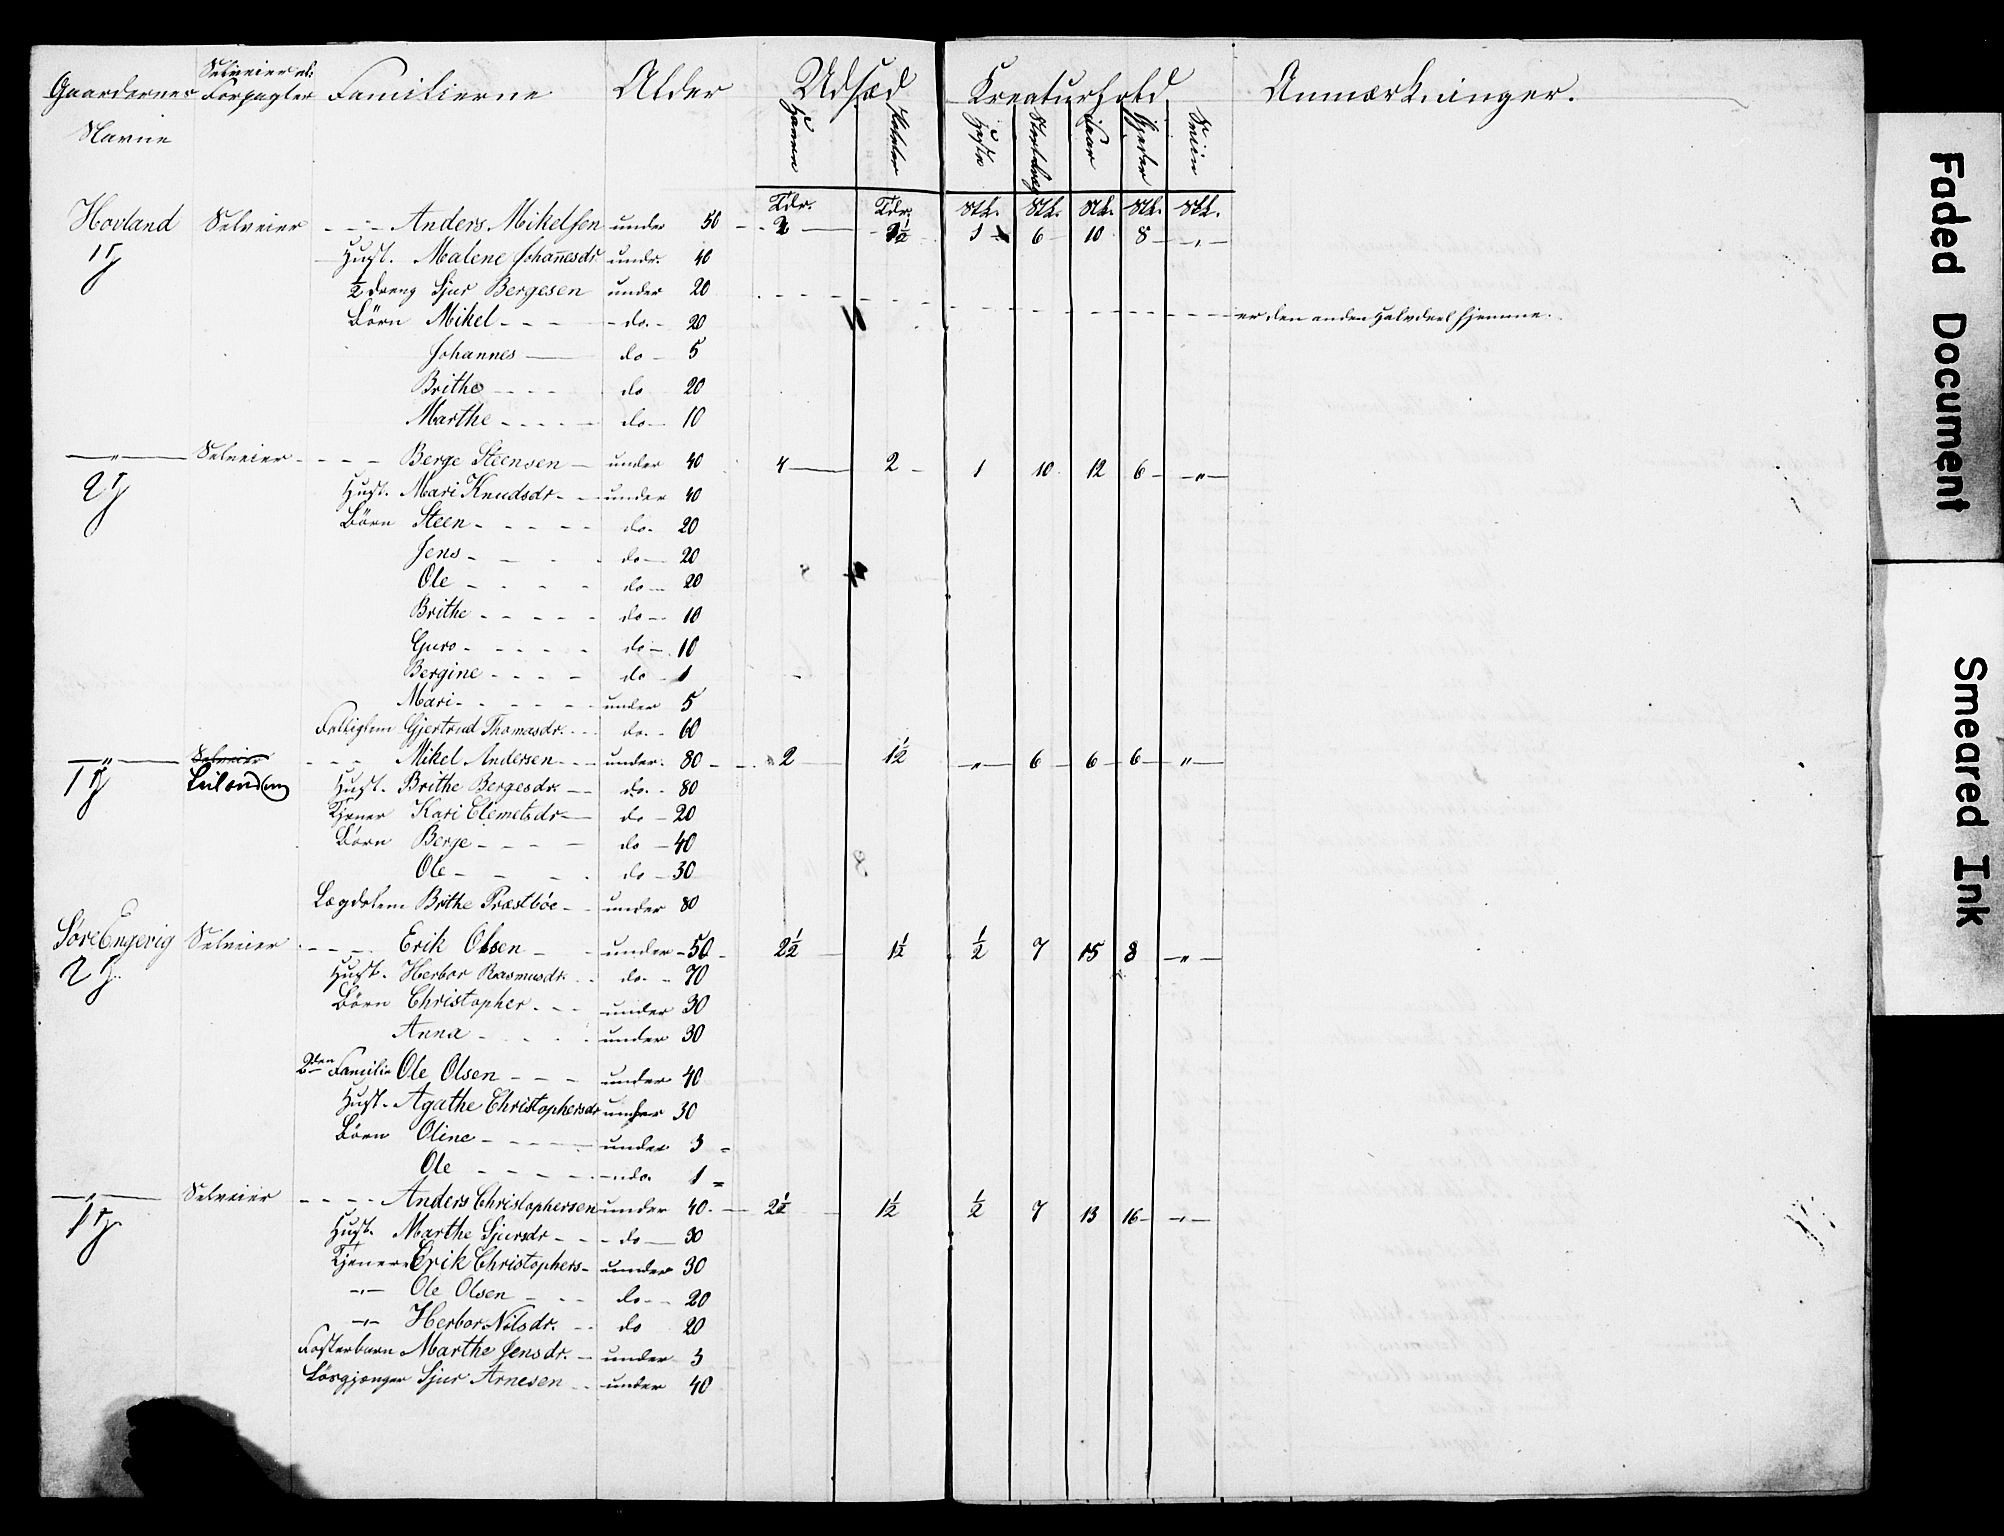 Gaardernes Navne | Selveier el: Forpagter | Familierne | Alder | Udsæd | Kreaturhold | Anmærkninger.
Havre | Poteter | Heste | Stort Qvæg | Faar | Gjeder | Sviin
Tdr. | Tdr. | Stk. | Stk. | Stk. | Stk. | Stk.
Hovland Selveier - - - Anders Mikelsen under 50 - 1½ 1 6 10 8 - „ -
1 Hust. Malene Johannesdr undr. 40
½ dreng Sjur Bergesen under 20
Børn Mikel - - - do. - 20 er den anden Halvdeel hjemme.
Johannes - do - 5
Brithe - - - do 20
Marthe - - - do - 10
- „ - Selveier - - - Berge Steensen - under 40 4 2 1 10 12 6 - „ -
2 Hust. Mari Knudsdr - under 40
Børn Steen - - - do. 20
Jens - - do - 20
Ole - - - do - 20
Brithe - - - do - 10
Guro - - - do - 10
Bergine - - - do - 1
Mari - - - under 5
Fattiglem Gjertrud Thomasdr. - - do. - 60
- „ - Selveier - - Mikel Andersen - - under 80 - - 2 1½ „ 6 6 6 „
1 Leilænding Hust. Brithe Bergesdr. - do. - 80
Tjener Kari Clemetsdr - do - 20
Børn Berje - - - do - 40
Ole - - - do - 30
Lægdslem Brithe Præstbøe - under 80
Søre Engevig Selveier - - - Erik Olsen - under - 50 - 2½ 1½ ½ 7 15 8 - „ -
2 Hust. Herbor Rasmusdr. - do. - 70
Børn Christopher - - - under 30
Anna - - - under 30
2den Familie Ole Olsen - - - under 40
Hust. Agathe Christophersdr under 30
Børn Oline - - - under 3
Ole - - - do. 1
- „ - Selveier - - - Anders Christophersen under 40 - 2½ 1½ ½ 7 13 16 - „ -
1 Hust. Marthe Sjursdr - - do - 30
Tjenere Erik Christophers - under 30
- „ - Ole Olsen - - do - 20
- „ - Herbor Nilsdr. - - do 20
Fosterbarn Marthe Jensdr. - under 3
Løsgjænger Sjur Arnesen - - under 40
Faded Document
Smeared Ink